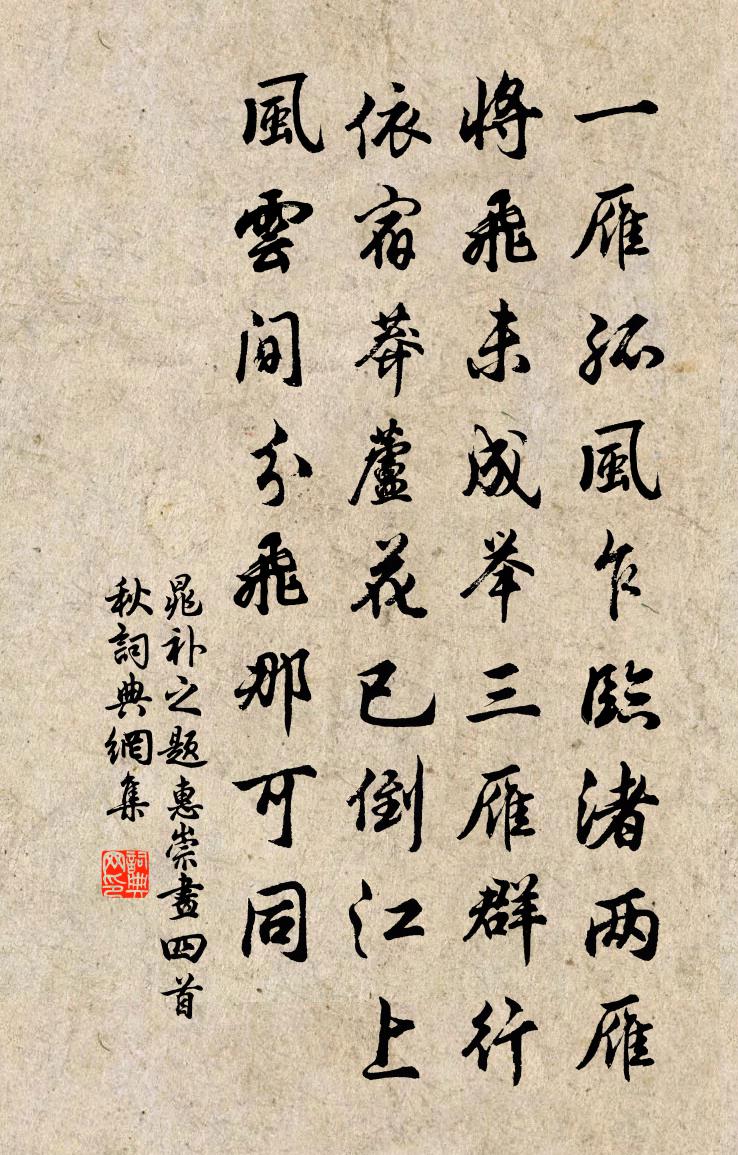 一雁孤風乍臨渚两雁
將飛未成举三雁群行
依宿莽蘆花已倒江上
風雲间分飛那可同
晁补之题惠崇畫四首
秋詞典網集
詞典网印